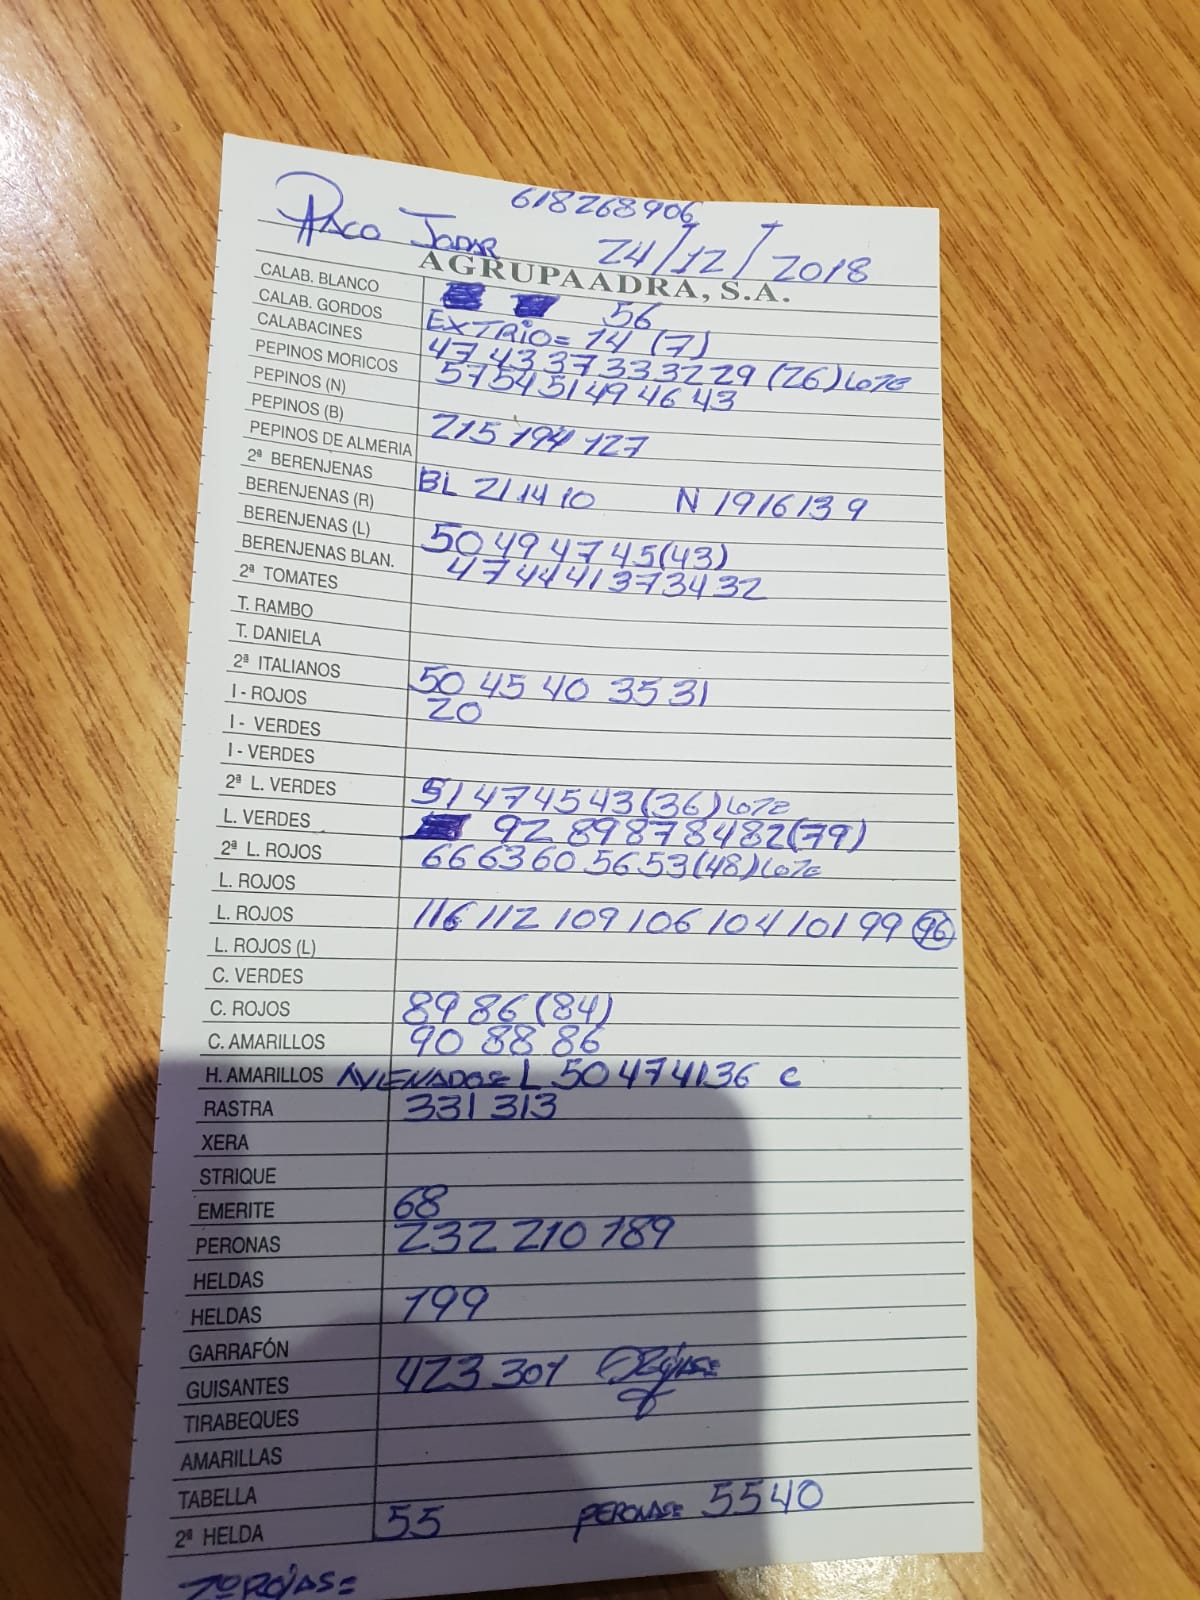 618268906
PACO JODAR 24/12/2018
AGRUPAADRA, S.A.
CALAB. BLANCO
CALAB. GORDOS 56
CALABACINES EXTRIO= 14 (7)
PEPINOS MORICOS 47 43 37 33 32 29 (26) LOTE
PEPINOS (N) 57 54 51 49 46 43
PEPINOS (B)
PEPINOS DE ALMERIA 215 194 127
2ª BERENJENAS
BERENJENAS (R) BL 21 14 10 N 19 16 13 9
BERENJENAS (L)
BERENJENAS BLAN. 50 49 47 45 (43)
2ª TOMATES 47 44 41 37 34 32
T. RAMBO
T. DANIELA
2ª ITALIANOS
I - ROJOS 50 45 40 35 31
I - VERDES 20
I - VERDES
2ª L. VERDES 51 47 45 43 (36) LOTE
L. VERDES 92 89 87 84 82 (79)
2ª L. ROJOS 66 63 60 56 53 (48) LOTE
L. ROJOS
L. ROJOS 116 112 109 106 104 101 99 96
L. ROJOS (L)
C. VERDES
C. ROJOS 89 86 (84)
C. AMARILLOS 90 88 86
H. AMARILLOS L 50 47 41 36 C
RASTRA 331 313
XERA
STRIQUE
EMERITE 68
PERONAS 232 210 189
HELDAS
HELDAS 199
GARRAFÓN
GUISANTES 423 301
TIRABEQUES
AMARILLAS
TABELLA
2ª HELDA 55 PERONAS= 55 40